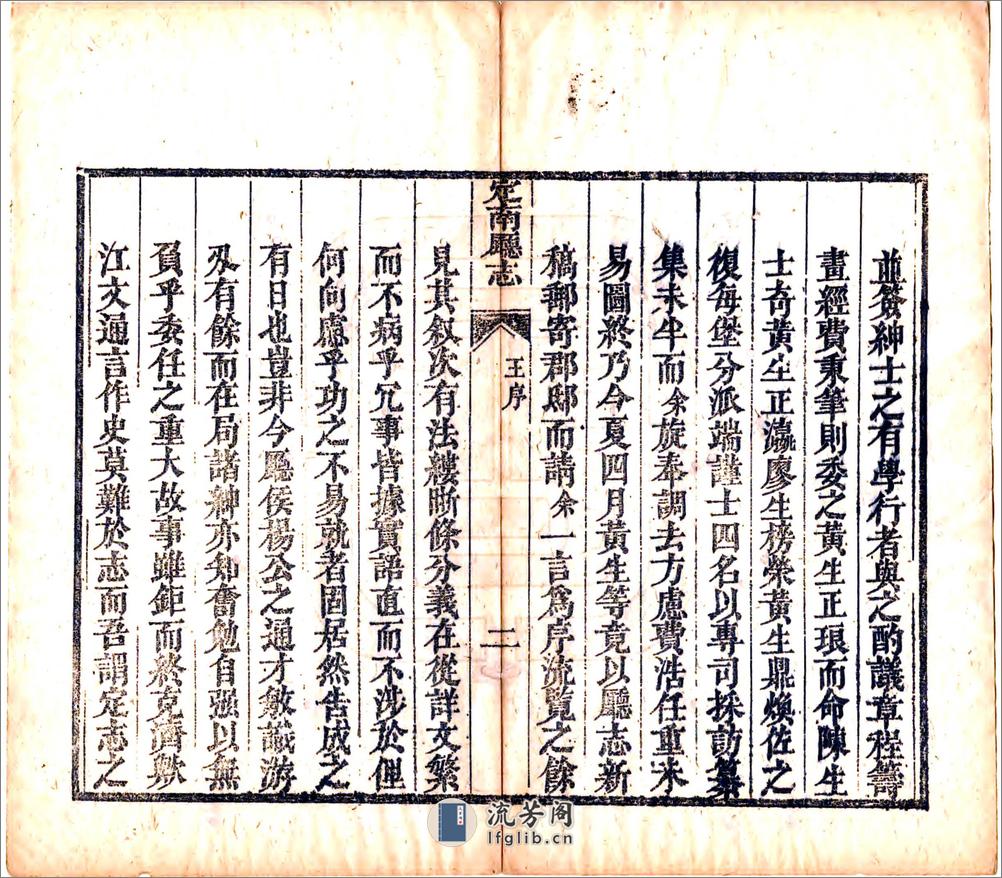 並簽紳士之有學行者與之酌議章程籌
畫經費秉筆則委之黃生正琅而命陳生
士奇黃生正瀛廖生榜榮黃生鼎煥佐之
復每堡分派端謹士四名以專司採訪纂
集未半而余旋奉調去方慮費浩任重未
易圖終乃今夏四月黃生等竟以廳志新
稿郵寄郡邸而請余一言爲序流覽之餘
定南廳志
王序
二
見其叙次有法縷晰條分義在從詳文繁
而不病乎冗事皆據實語直而不涉於俚
何向慮乎功之不易就者固居然告成之
有日也豈非今廳侯楊公之通才敏識游
刄有餘而在局諸紳亦知奮勉自强以無
負乎委任之重大故事雖鉅而終克濟歟
江文通言作史莫難於志而吾謂定志之
流芳阁
lfglib.cn